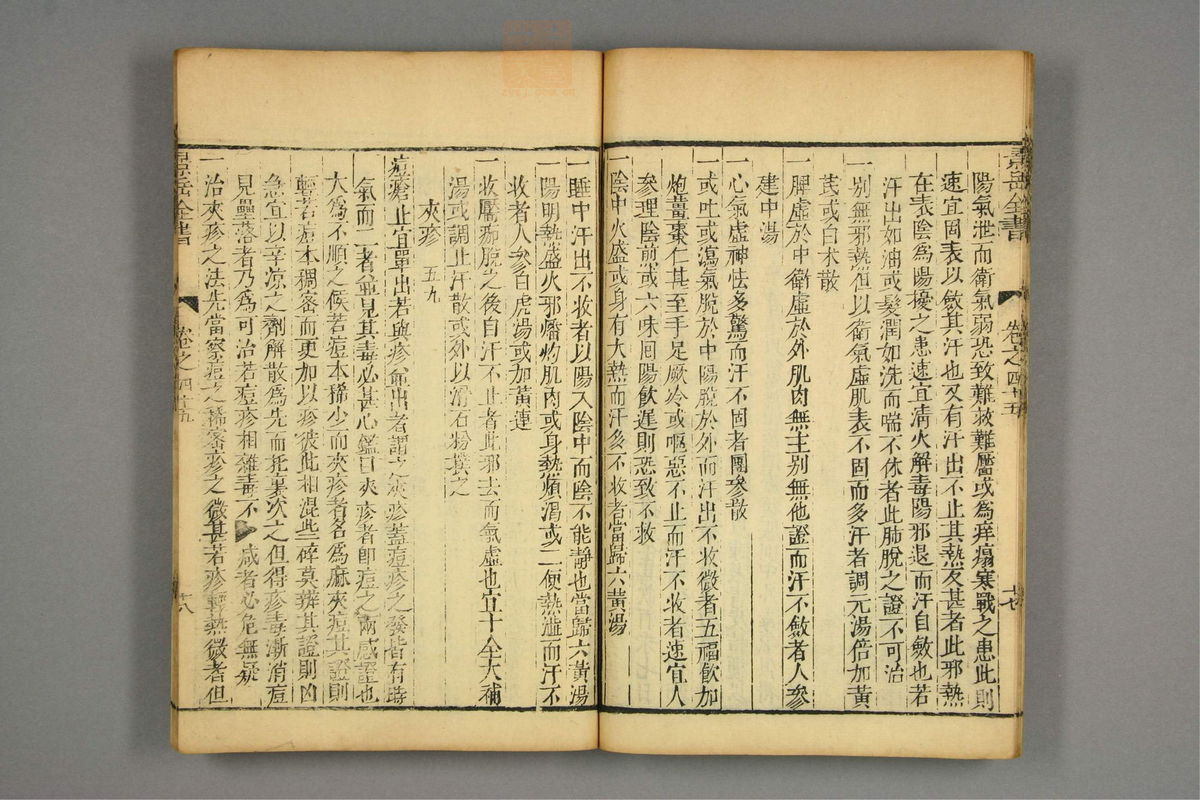 景岳全書
卷之四十五
陽氣泄而衛氣弱恐致難救難靨或為痒塌寒戰之患此則
速宜固表以斂其汗也又有汗出不止其熱反甚者此邪熱
在表陰為陽擾之患速宜清火解毒陽邪退而汗自斂也若
汗出如油或髮潤如洗而喘不休者此肺脫之證不可治
一別無邪熱但以衛氣虛肌表不固而多汗者調元湯倍加黃
芪或白朮散
一脾虛於中衛虛於外肌肉無主別無他證而汗不斂者人參
建中湯
一心氣虛神怯多驚而汗不固者團參散
一或吐或瀉氣脫於中陽脫於外而汗出不收微者五福飲加
炮薑棗仁甚至手足厥冷或嘔惡不止而汗不收者速宜人
參理陰煎或六味回陽飲遲則恐致不救
一陰中火盛或身有大熱而汗多不收者當歸六黃湯
一睡中汗出不收者以陽入陰中而陰不能靜也當歸六黃湯
一陽明熱盛火邪燔灼肌肉或身熱煩渴或二便熱澁而汗不
收者人參白虎湯或加黃連
一收靨痂脫之後自汗不止者此邪去而氣虛也宜十全大補
湯或調止汗散或外以滑石粉撲之
夾疹 五九
痘瘡止宜單出若與疹並出者謂之夾疹蓋痘疹之發皆有時
氣而二者並見其毒必甚心鑑曰夾疹者即痘之兩感證也
大為不順之候若痘本稀少而夾疹者名為麻夾痘其證則
輕若痘本稠密而更加以疹彼此相混些碎莫辨其證則凶
急宜以辛涼之劑解散為先而托裏次之但得疹毒漸消痘
見疊落者乃為可治若痘疹相雜毒不 咸者必危無疑
一治夾疹之法先當察痘之稀密疹之微甚若疹輕熱微者但
景岳全書
卷之四十五
十八